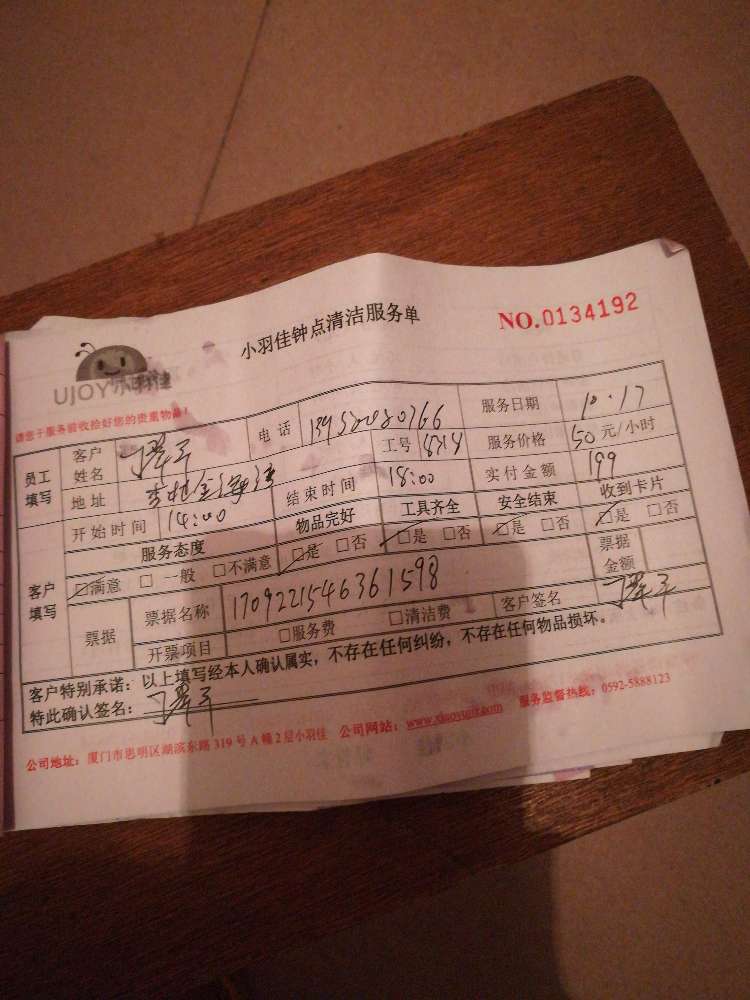 小羽佳钟点清洁服务单
NO.0134192
UJOY小羽佳
请您于服务前收拾好您的贵重物品！
员工填写 客户姓名 电话 服务日期 10.17
地址 工号 服务价格 50元/小时
开始时间 14:00 结束时间 18:00 实付金额 199
客户填写 服务态度 物品完好 工具齐全 安全结束 收到卡片
☑满意 □一般 □不满意 ☑是 □否 ☑是 □否 ☑是 □否 ☑是 □否
票据 票据名称 1709221546361598 票据金额
开票项目 □服务费 □清洁费 客户签名
客户特别承诺：以上填写经本人确认属实，不存在任何纠纷，不存在任何物品损坏。
特此确认签名：
公司地址：厦门市思明区湖滨东路319号A幢2层小羽佳 公司网站：www.xiaoyujia.com 服务监督热线：0592-5888123